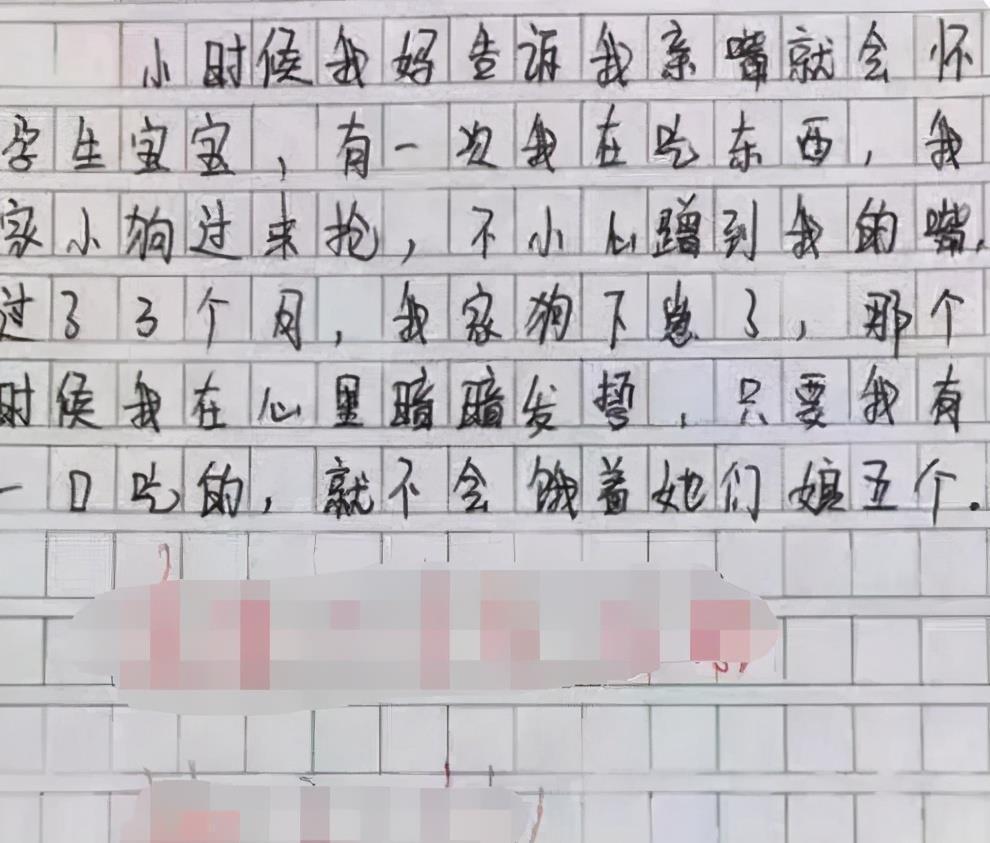 小时候我妈告诉我亲嘴就会怀
孕生宝宝，有一次我在吃东西，我
家小狗过来抢，不小心蹭到我的嘴，
过了3个月，我家狗下崽了，那个
时候我在心里暗暗发誓，只要我有
一口吃的，就不会饿着她们娘五个.